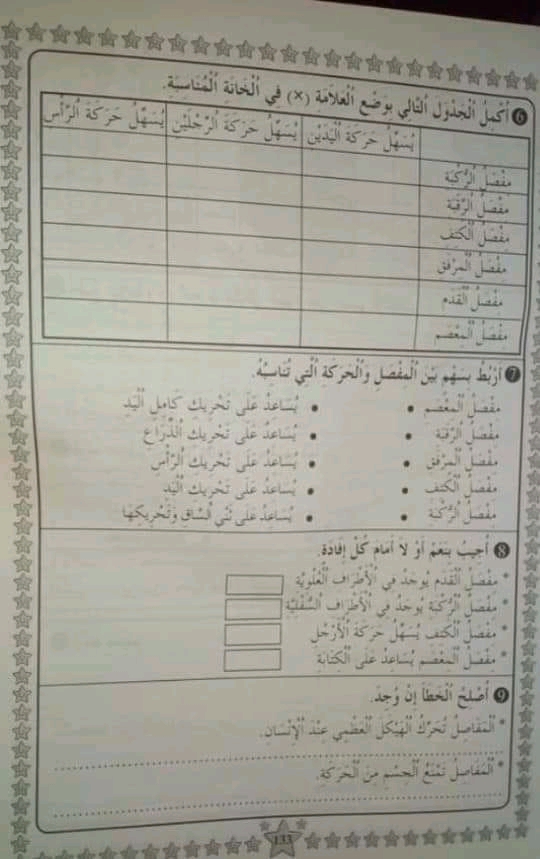 6 أُكْمِلُ الْجَدْوَلَ التَّالِي بِوَضْعِ الْعَلَامَةِ (×) فِي الْخَانَةِ الْمُنَاسِبَةِ.
يُسَهِّلُ حَرَكَةَ الْيَدَيْنِ يُسَهِّلُ حَرَكَةَ الرِّجْلَيْنِ يُسَهِّلُ حَرَكَةَ الرَّأْسِ
مِفْصَلُ الرُّكْبَةِ
مِفْصَلُ الرَّقَبَةِ
مِفْصَلُ الْكَتِفِ
مِفْصَلُ الْمِرْفَقِ
مِفْصَلُ الْقَدَمِ
مِفْصَلُ الْمِعْصَمِ
7 أَرْبِطُ بِسَهْمٍ بَيْنَ الْمِفْصَلِ وَالْحَرَكَةِ الَّتِي تُنَاسِبُهُ.
مِفْصَلُ الْمِعْصَمِ • • يُسَاعِدُ عَلَى تَحْرِيكِ كَامِلِ الْيَدِ
مِفْصَلُ الرَّقَبَةِ • • يُسَاعِدُ عَلَى تَحْرِيكِ الذِّرَاعِ
مِفْصَلُ الْمِرْفَقِ • • يُسَاعِدُ عَلَى تَحْرِيكِ الرَّأْسِ
مِفْصَلُ الْكَتِفِ • • يُسَاعِدُ عَلَى تَحْرِيكِ الْيَدِ
مِفْصَلُ الرُّكْبَةِ • • يُسَاعِدُ عَلَى ثَنْيِ السَّاقِ وَتَحْرِيكِهَا
8 أُجِيبُ بِنَعَمْ أَوْ لَا أَمَامَ كُلِّ إِفَادَةٍ.
* مِفْصَلُ الْقَدَمِ يُوجَدُ فِي الْأَطْرَافِ الْعُلْوِيَّةِ
* مِفْصَلُ الرُّكْبَةِ يُوجَدُ فِي الْأَطْرَافِ السُّفْلِيَّةِ
* مِفْصَلُ الْكَتِفِ يُسَهِّلُ حَرَكَةَ الْأَرْجُلِ
* مِفْصَلُ الْمِعْصَمِ يُسَاعِدُ عَلَى الْكِتَابَةِ
9 أُصْلِحُ الْخَطَأَ إِنْ وُجِدَ.
* الْمَفَاصِلُ تُحَرِّكُ الْهَيْكَلَ الْعَظْمِي عِنْدَ الْإِنْسَانِ.
* الْمَفَاصِلُ تَمْنَعُ الْجِسْمَ مِنَ الْحَرَكَةِ.
133